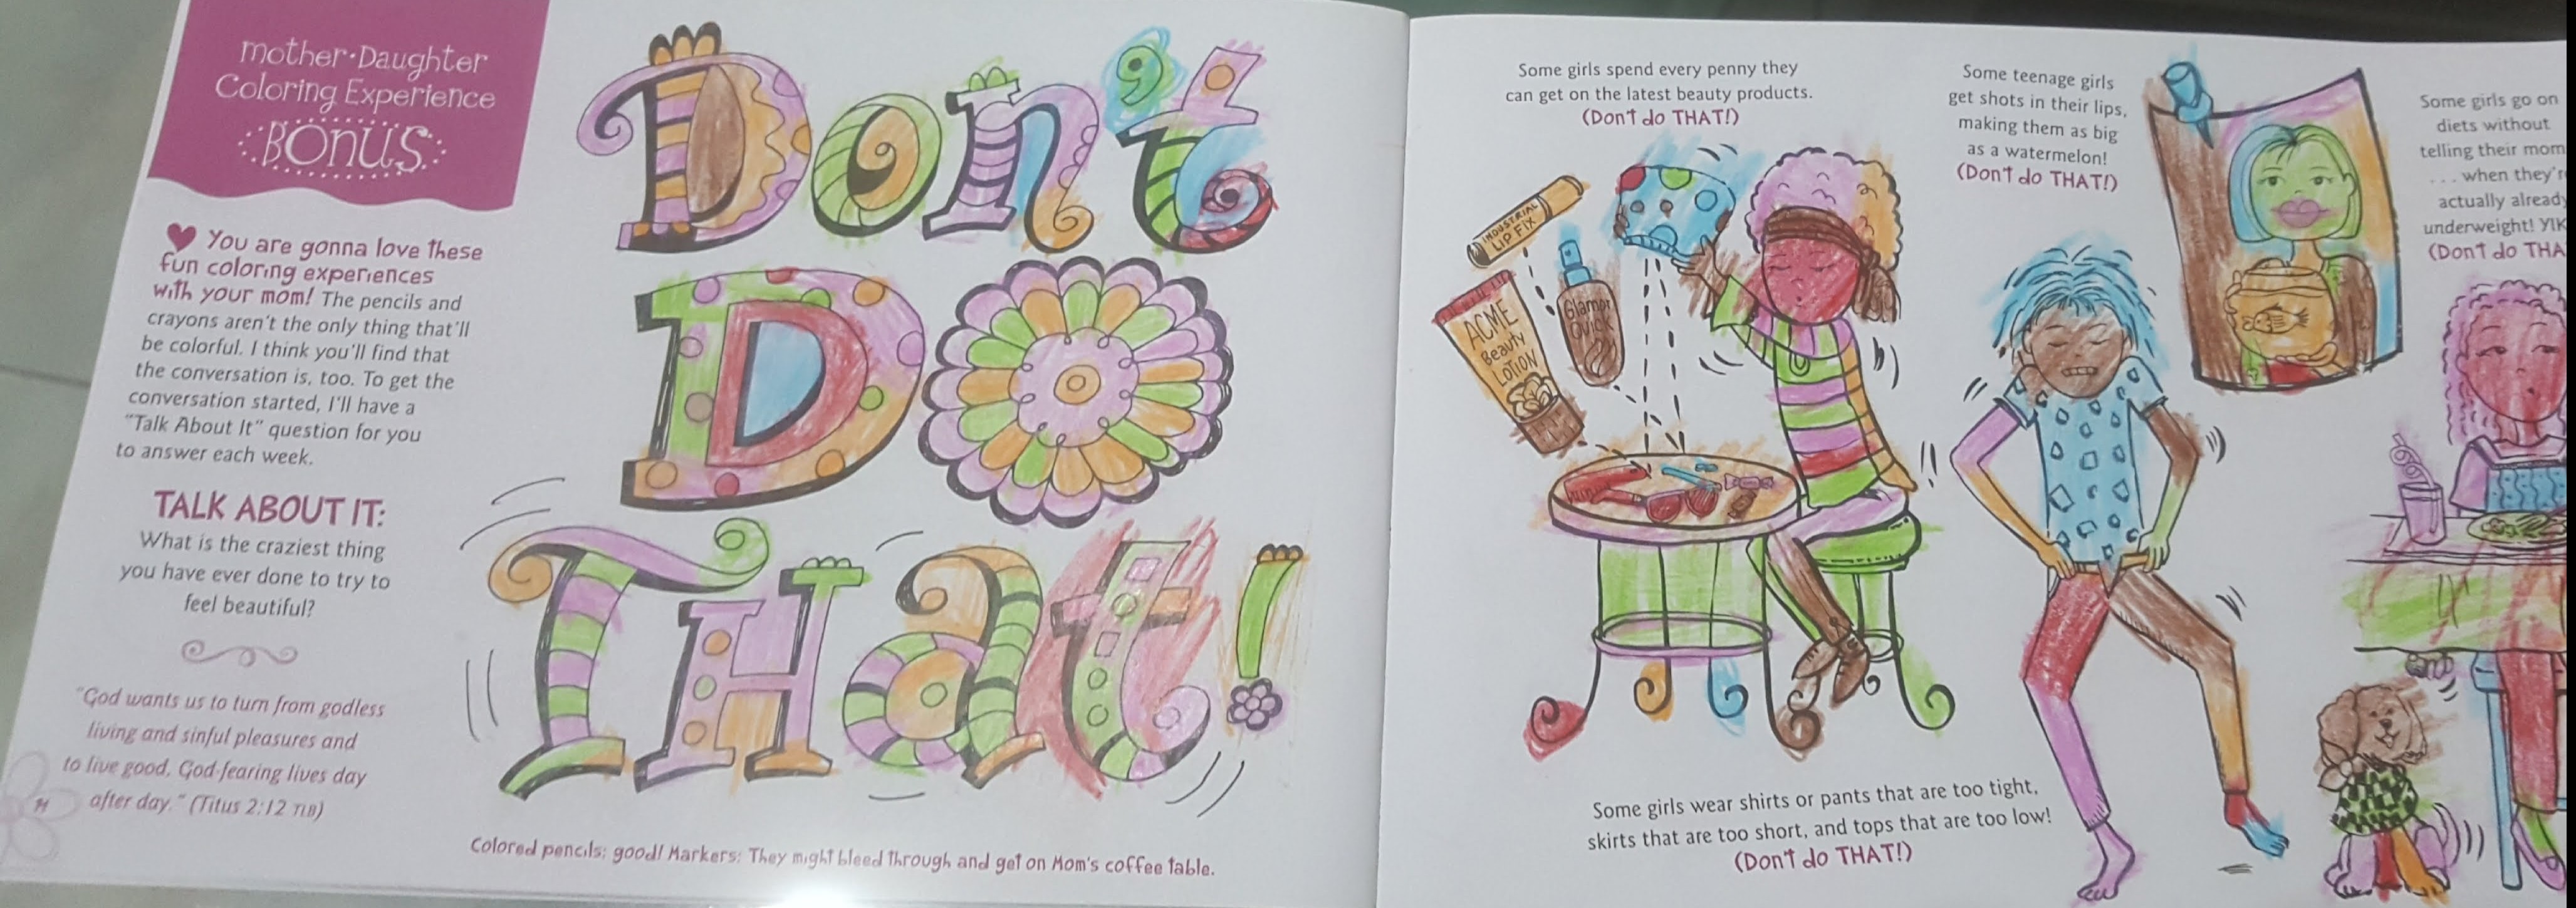 mother·Daughter
Coloring Experience
BONUS
You are gonna love these
fun coloring experiences
with your mom! The pencils and
crayons aren't the only thing that'll
be colorful. I think you'll find that
the conversation is, too. To get the
conversation started, I'll have a
"Talk About It" question for you
to answer each week.
TALK ABOUT IT:
What is the craziest thing
you have ever done to try to
feel beautiful?
"God wants us to turn from godless
living and sinful pleasures and
to live good, God-fearing lives day
after day." (Titus 2:12 TLB)
Don't
DO
THat!
Colored pencils: good! Markers: They might bleed through and get on Mom's coffee table.
Some girls spend every penny they
can get on the latest beauty products.
(Don't do THAT!)
INDUSTRIAL
LIP FIX
Glamor
QUICK
ACME
Beauty
LOTION
Some teenage girls
get shots in their lips,
making them as big
as a watermelon!
(Don't do THAT!)
Some girls go on
diets without
telling their mom
. . . when they'r
actually already
underweight! YIK
(Don't do THA
Some girls wear shirts or pants that are too tight,
skirts that are too short, and tops that are too low!
(Don't do THAT!)